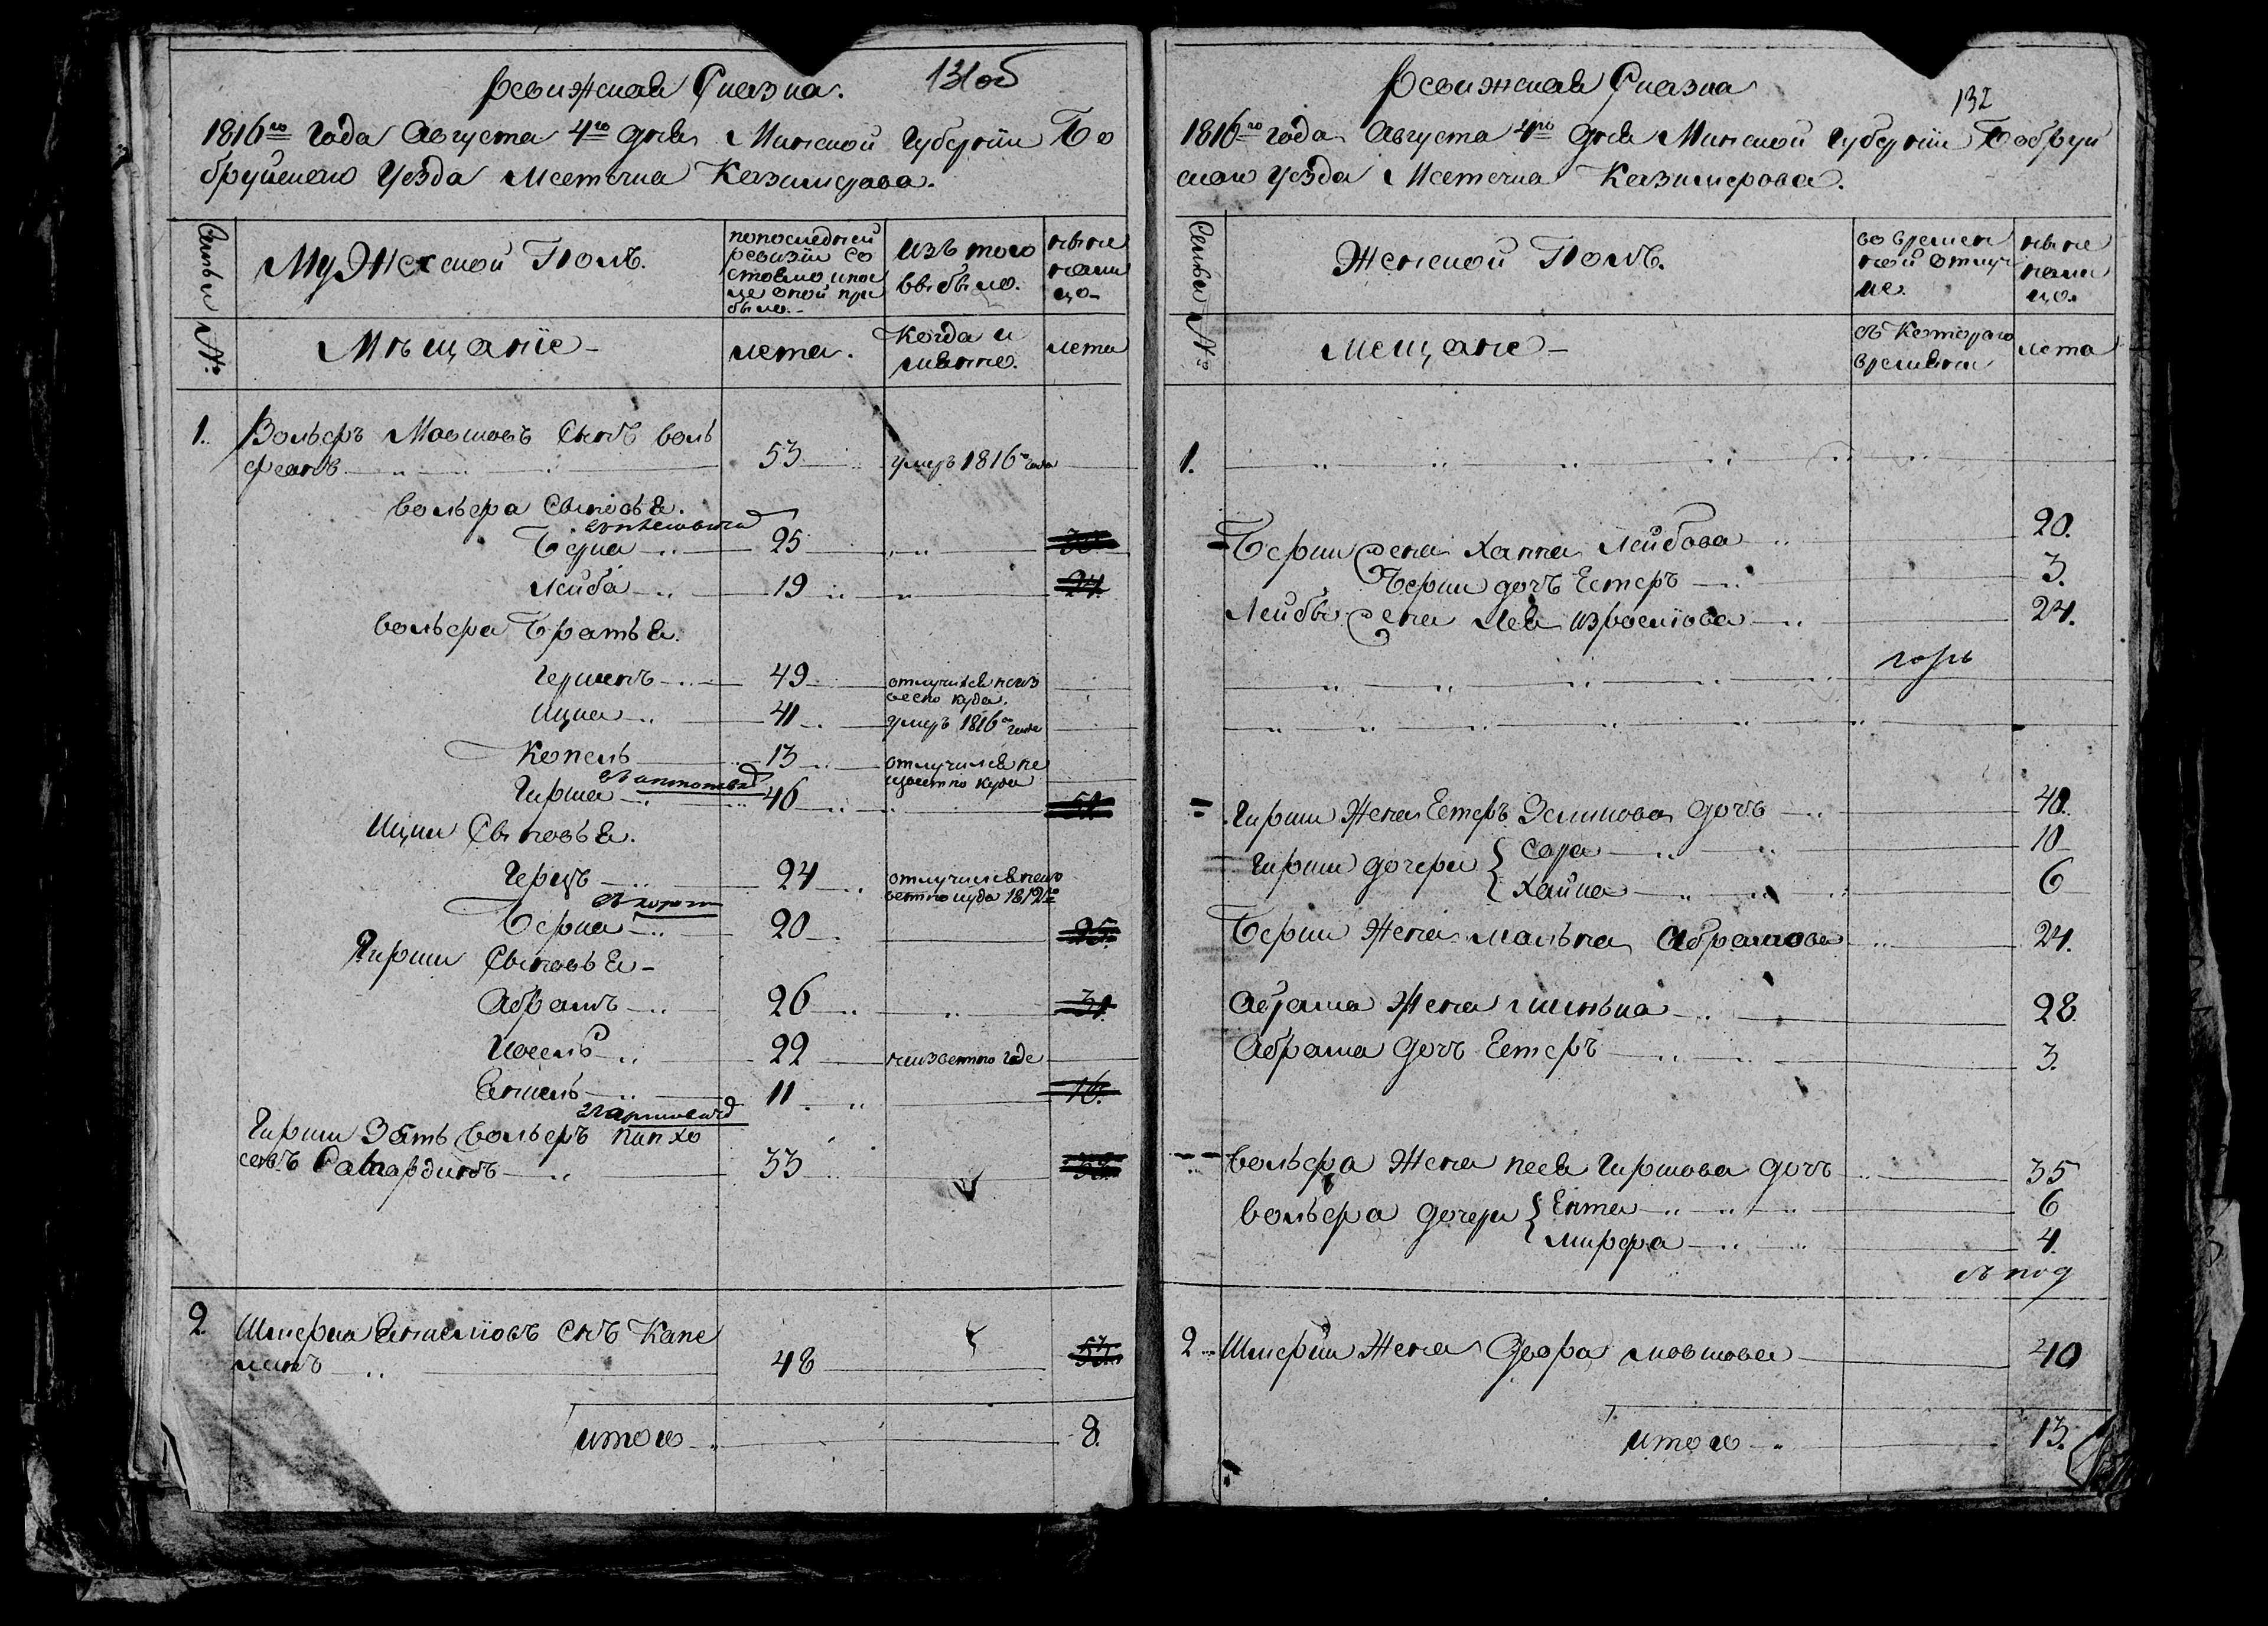 Ревижская Сказка. 131об
1816го года Августа 4го дня Минской Губернїи Бо
бруйскаго Уезда Местечка Казимерова.
Семьи №
Мужеской Полъ.
попоследней
ревизїи со
стояло ипос
ле оной при
было.
изъ того
выбыло.
ныне
нали
цо
Мѣщанїе
лета.
Когда и
лета
1. Вольфъ Мовшовъ Сынъ воль
53 умеръ 1816го года
вольфа Сыновья.
Берка 25
Лейба 19 24
вольфа Братья.
Гершенъ 49 отлучился неиз
весно куда.
Ицка 41 умеръ 1816го года
Копель 13 отлучился не
Гирша 46 51
Ицки Сыновья.
Герцъ 24 отлучился неиз
вестно куда 1812го
Берка 20 25
Гирши Сыновья
Абрамъ 26 31
Иосель 22 неизвестно где
11 16
Гирши Зять вольфъ Пинхо
совъ 33 38
2. Шмерка сынъ Капе
48 53
итого 8.
Ревижская Сказка
132
1816го года Августа 4го дня Минской Губернїи Бобруй
скаго Уезда Местечка Казимерова.
Семьи №
Женской Полъ.
во времен
ной отлуч
ке.
ныне
нали
цо
мещане
съ Котораго
времяни
лета
1.
Берки жена Ханна Лейбова 20.
Берки дочъ Естеръ 3.
Лейбы жена Лея Израелюва 24.
Гирши Жена Естеръ Зеликова дочъ 40.
Гирши дочери { Сора 10
Хайка 6
Берки Жена Малька Абрамова 24.
Абрама Жена 28.
Абрама дочъ Естеръ 3.
вольфа Жена песя Гиршова дочъ 35
вольфа дочери { Ента 6
4.
2 Шмерки Жена Двора мовшова 40
итого 13.